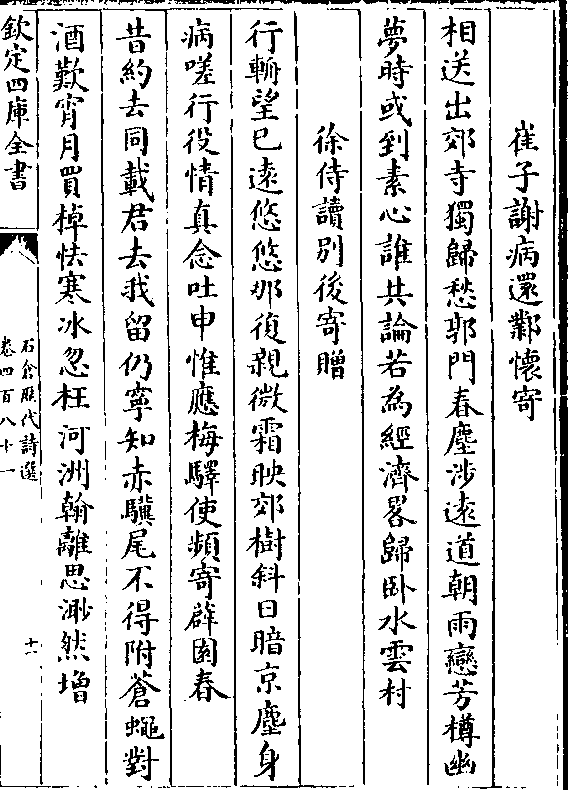 崔子謝病還鄴懷寄
相送出郊寺獨歸愁郭門春塵渉逺道朝雨戀芳樽幽
夢時或到素心誰共論若為經濟畧歸卧水雲村
徐侍讀别後寄贈
行輈望已逺悠悠那復親微霜映郊樹斜日暗京塵身
病嗟行役情真念吐申惟應梅驛使頻寄辟園春
昔約去同載君去我留仍寧知赤驥尾不得附蒼蠅對
酒歎宵月買棹怯寒冰忽枉河洲翰離思渺然增
欽定四庫全書
石倉歴代詩選
卷四百八十一
十一